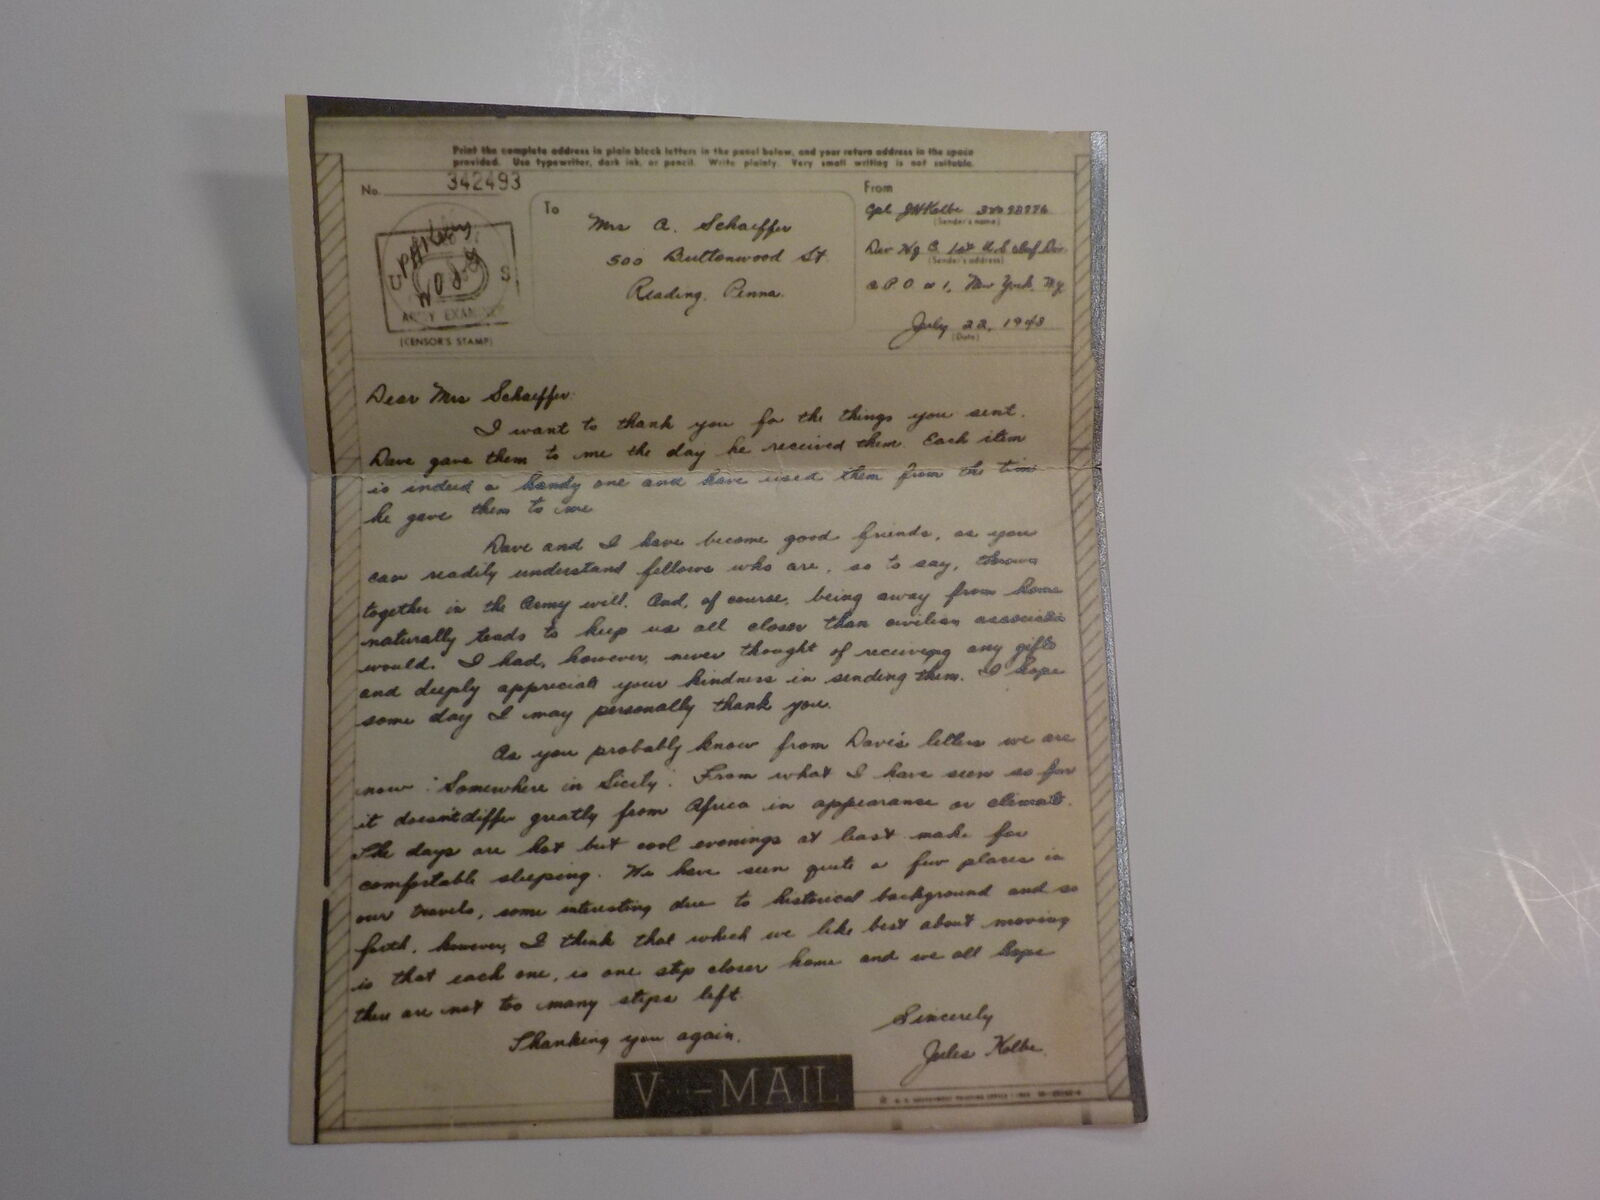 Print the complete address in plain block letters in the panel below, and your return address in the space
provided. Use typewriter, dark ink, or pencil. Write plainly. Very small writing is not suitable.
No. 342493
ARMY EXAMINER
U S
(CENSOR'S STAMP)
To
Mrs A. Schaeffer
500 Buttonwood St.
Reading, Penna.
From
Cpl JH Kolbe
(Sender's name)
Div Hq 1st U.S. Inf. Div.
(Sender's address)
A P O # 1, New York, NY
July 22, 1943
(Date)
Dear Mrs Schaeffer:
I want to thank you for the things you sent.
Dave gave them to me the day he received them. Each item
is indeed a handy one and have used them from the time
he gave them to me
Dave and I have become good friends, as you
can readily understand fellows who are, so to say, thrown
together in the Army will. And, of course, being away from home
naturally tends to keep us all closer than civilian associates
would. I had, however, never thought of receiving any gifts
and deeply appreciate your kindness in sending them. I hope
some day I may personally thank you.
As you probably know from Dave's letters we are
now "Somewhere in Sicily". From what I have seen so far
it doesn't differ greatly from Africa in appearance or climate.
The days are hot but cool evenings at least make for
comfortable sleeping. We have seen quite a few places in
our travels, some interesting due to historical background and so
forth, however, I think that which we like best about moving
is that each one, is one step closer home and we all hope
there are not too many steps left.
Thanking you again,
Sincerely
Jules Kolbe.
V - MAIL
U. S. GOVERNMENT PRINTING OFFICE